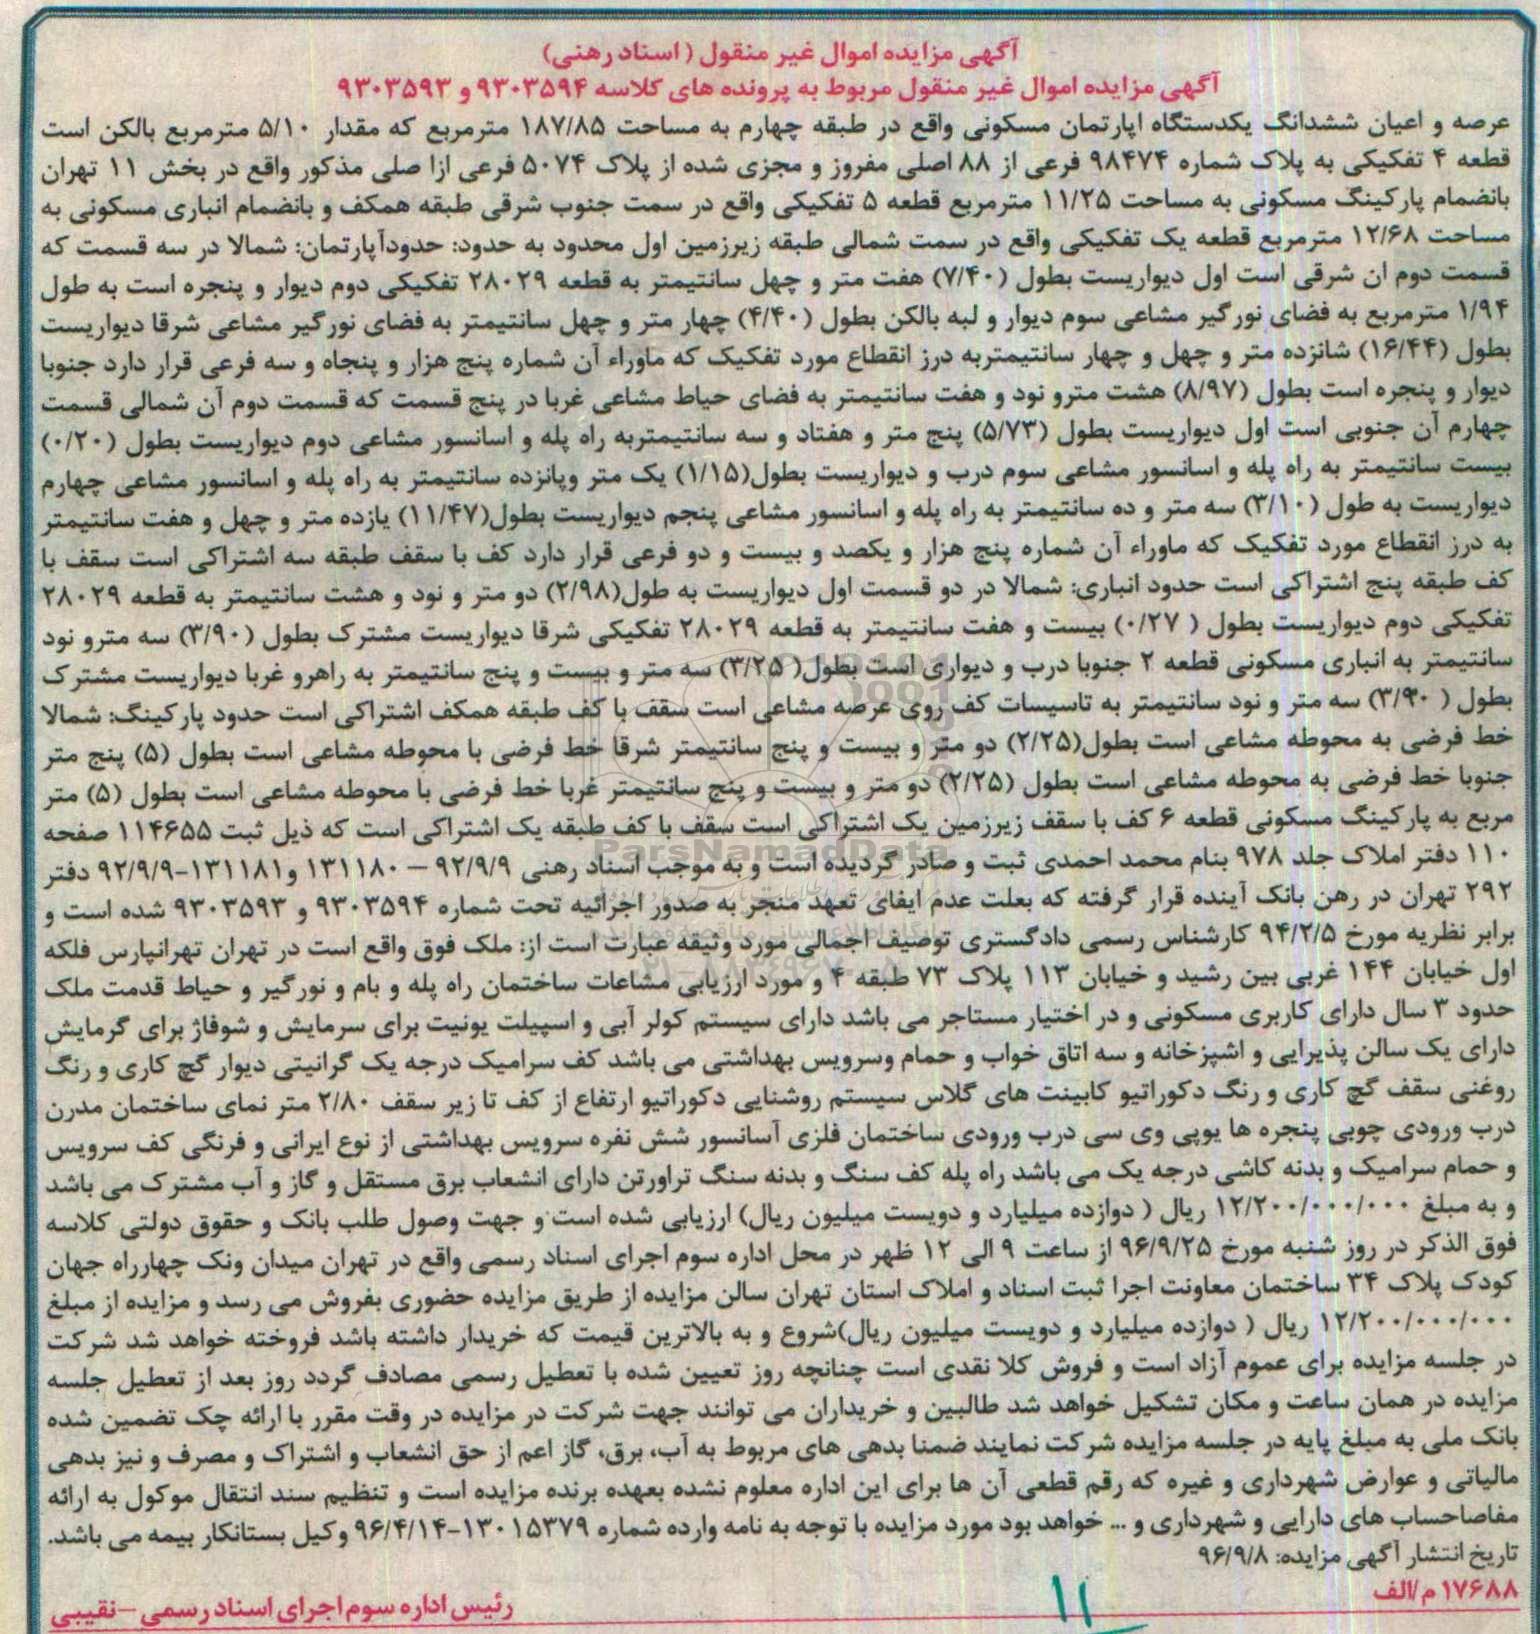 آگهی مزایده اموال غیر منقول (اسناد رهنی)
آگهی مزایده اموال غیر منقول مربوط به پرونده های کلاسه ۹۳۰۳۵۹۴ و ۹۳۰۳۵۹۳
عرصه و اعیان ششدانگ یکدستگاه اپارتمان مسکونی واقع در طبقه چهارم به مساحت ۱۸۷/۸۵ مترمربع که مقدار ۵/۱۰ مترمربع بالکن است
قطعه ۴ تفکیکی به پلاک شماره ۹۸۴۷۴ فرعی از ۸۸ اصلی مفروز و مجزی شده از پلاک ۵۰۷۴ فرعی ازا صلی مذکور واقع در بخش ۱۱ تهران
بانضمام پارکینگ مسکونی به مساحت ۱۱/۲۵ مترمربع قطعه ۵ تفکیکی واقع در سمت جنوب شرقی طبقه همکف و بانضمام انباری مسکونی به
مساحت ۱۲/۶۸ مترمربع قطعه یک تفکیکی واقع در سمت شمالی طبقه زیرزمین اول محدود به حدود: حدودآپارتمان: شمالا در سه قسمت که
قسمت دوم ان شرقی است اول دیواریست بطول (۷/۴۰) هفت متر و چهل سانتیمتر به قطعه ۲۸۰۲۹ تفکیکی دوم دیوار و پنجره است به طول
۱/۹۴ مترمربع به فضای نورگیر مشاعی سوم دیوار و لبه بالکن بطول (۴/۴۰) چهار متر و چهل سانتیمتر به فضای نورگیر مشاعی شرقا دیواریست
بطول (۱۶/۴۴) شانزده متر و چهل و چهار سانتیمتربه درز انقطاع مورد تفکیک که ماوراء آن شماره پنج هزار و پنجاه و سه فرعی قرار دارد جنوبا
دیوار و پنجره است بطول (۸/۹۷) هشت مترو نود و هفت سانتیمتر به فضای حیاط مشاعی غربا در پنج قسمت که قسمت دوم آن شمالی قسمت
چهارم آن جنوبی است اول دیواریست بطول (۵/۷۳) پنج متر و هفتاد و سه سانتیمتربه راه پله و اسانسور مشاعی دوم دیواریست بطول (۰/۲۰)
بیست سانتیمتر به راه پله و اسانسور مشاعی سوم درب و دیواریست بطول(۱/۱۵) یک متر وپانزده سانتیمتر به راه پله و اسانسور مشاعی چهارم
دیواریست به طول (۳/۱۰) سه متر و ده سانتیمتر به راه پله و اسانسور مشاعی پنجم دیواریست بطول(۱۱/۴۷) یازده متر و چهل و هفت سانتیمتر
به درز انقطاع مورد تفکیک که ماوراء آن شماره پنج هزار و یکصد و بیست و دو فرعی قرار دارد کف با سقف طبقه سه اشتراکی است سقف با
کف طبقه پنج اشتراکی است حدود انباری: شمالا در دو قسمت اول دیواریست به طول(۲/۹۸) دو متر و نود و هشت سانتیمتر به قطعه ۲۸۰۲۹
تفکیکی دوم دیواریست بطول ( ۰/۲۷) بیست و هفت سانتیمتر به قطعه ۲۸۰۲۹ تفکیکی شرقا دیواریست مشترک بطول (۳/۹۰) سه مترو نود
سانتیمتر به انباری مسکونی قطعه ۲ جنوبا درب و دیواری است بطول( ۳/۲۵) سه متر و بیست و پنج سانتیمتر به راهرو غربا دیواریست مشترک
بطول ( ۳/۹۰) سه متر و نود سانتیمتر به تاسیسات کف روی عرصه مشاعی است سقف با کف طبقه همکف اشتراکی است حدود پارکینگ: شمالا
خط فرضی به محوطه مشاعی است بطول(۲/۲۵) دو متر و بیست و پنج سانتیمتر شرقا خط فرضی با محوطه مشاعی است بطول (۵) پنج متر
جنوبا خط فرضی به محوطه مشاعی است بطول (۲/۲۵) دو متر و بیست و پنج سانتیمتر غربا خط فرضی با محوطه مشاعی است بطول (۵) متر
مربع به پارکینگ مسکونی قطعه ۶ کف با سقف زیرزمین یک اشتراکی است سقف با کف طبقه یک اشتراکی است که ذیل ثبت ۱۱۴۶۵۵ صفحه
۱۱۰ دفتر املاک جلد ۹۷۸ بنام محمد احمدی ثبت و صادر گردیده است و به موجب اسناد رهنی ۹۲/۹/۹ – ۱۳۱۱۸۰ و۱۳۱۱۸۱-۹۲/۹/۹ دفتر
۲۹۲ تهران در رهن بانک آینده قرار گرفته که بعلت عدم ایفای تعهد منجر به صدور اجرائیه تحت شماره ۹۳۰۳۵۹۴ و ۹۳۰۳۵۹۳ شده است و
برابر نظریه مورخ ۹۴/۲/۵ کارشناس رسمی دادگستری توصیف اجمالی مورد وثیقه عبارت است از: ملک فوق واقع است در تهران تهرانپارس فلکه
اول خیابان ۱۴۴ غربی بین رشید و خیابان ۱۱۳ پلاک ۷۳ طبقه ۴ و مورد ارزیابی مشاعات ساختمان راه پله و بام و نورگیر و حیاط قدمت ملک
حدود ۳ سال دارای کاربری مسکونی و در اختیار مستاجر می باشد دارای سیستم کولر آبی و اسپیلت یونیت برای سرمایش و شوفاژ برای گرمایش
دارای یک سالن پذیرایی و اشپزخانه و سه اتاق خواب و حمام وسرویس بهداشتی می باشد کف سرامیک درجه یک گرانیتی دیوار گچ کاری و رنگ
روغنی سقف گچ کاری و رنگ دکوراتیو کابینت های گلاس سیستم روشنایی دکوراتیو ارتفاع از کف تا زیر سقف ۲/۸۰ متر نمای ساختمان مدرن
درب ورودی چوبی پنجره ها یوپی وی سی درب ورودی ساختمان فلزی آسانسور شش نفره سرویس بهداشتی از نوع ایرانی و فرنگی کف سرویس
و حمام سرامیک و بدنه کاشی درجه یک می باشد راه پله کف سنگ و بدنه سنگ تراورتن دارای انشعاب برق مستقل و گاز و آب مشترک می باشد
و به مبلغ ۱۲/۲۰۰/۰۰۰/۰۰۰ ریال ( دوازده میلیارد و دویست میلیون ریال) ارزیابی شده است و جهت وصول طلب بانک و حقوق دولتی کلاسه
فوق الذکر در روز شنبه مورخ ۹۶/۹/۲۵ از ساعت ۹ الی ۱۲ ظهر در محل اداره سوم اجرای اسناد رسمی واقع در تهران میدان ونک چهارراه جهان
کودک پلاک ۳۴ ساختمان معاونت اجرا ثبت اسناد و املاک استان تهران سالن مزایده از طریق مزایده حضوری بفروش می رسد و مزایده از مبلغ
۱۲/۲۰۰/۰۰۰/۰۰۰ ریال ( دوازده میلیارد و دویست میلیون ریال)شروع و به بالاترین قیمت که خریدار داشته باشد فروخته خواهد شد شرکت
در جلسه مزایده برای عموم آزاد است و فروش کلا نقدی است چنانچه روز تعیین شده با تعطیل رسمی مصادف گردد روز بعد از تعطیل جلسه
مزایده در همان ساعت و مکان تشکیل خواهد شد طالبین و خریداران می توانند جهت شرکت در مزایده در وقت مقرر با ارائه چک تضمین شده
بانک ملی به مبلغ پایه در جلسه مزایده شرکت نمایند ضمنا بدهی های مربوط به آب، برق، گاز اعم از حق انشعاب و اشتراک و مصرف و نیز بدهی
مالیاتی و عوارض شهرداری و غیره که رقم قطعی آن ها برای این اداره معلوم نشده بعهده برنده مزایده است و تنظیم سند انتقال موکول به ارائه
مفاصاحساب های دارایی و شهرداری و ... خواهد بود مورد مزایده با توجه به نامه وارده شماره ۱۳۰۱۵۳۷۹-۹۶/۴/۱۴ وکیل بستانکار بیمه می باشد.
تاریخ انتشار آگهی مزایده: ۹۶/۹/۸
۱۷۶۸۸ م/الف
رئیس اداره سوم اجرای اسناد رسمی – نقیبی
۱۱
ParsNamadData